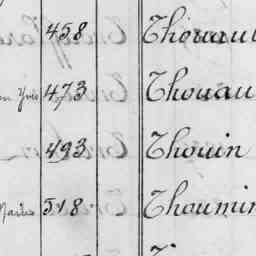 458 Thouau
Yves 473 Thouau
493 Thouin
518 Thoumin